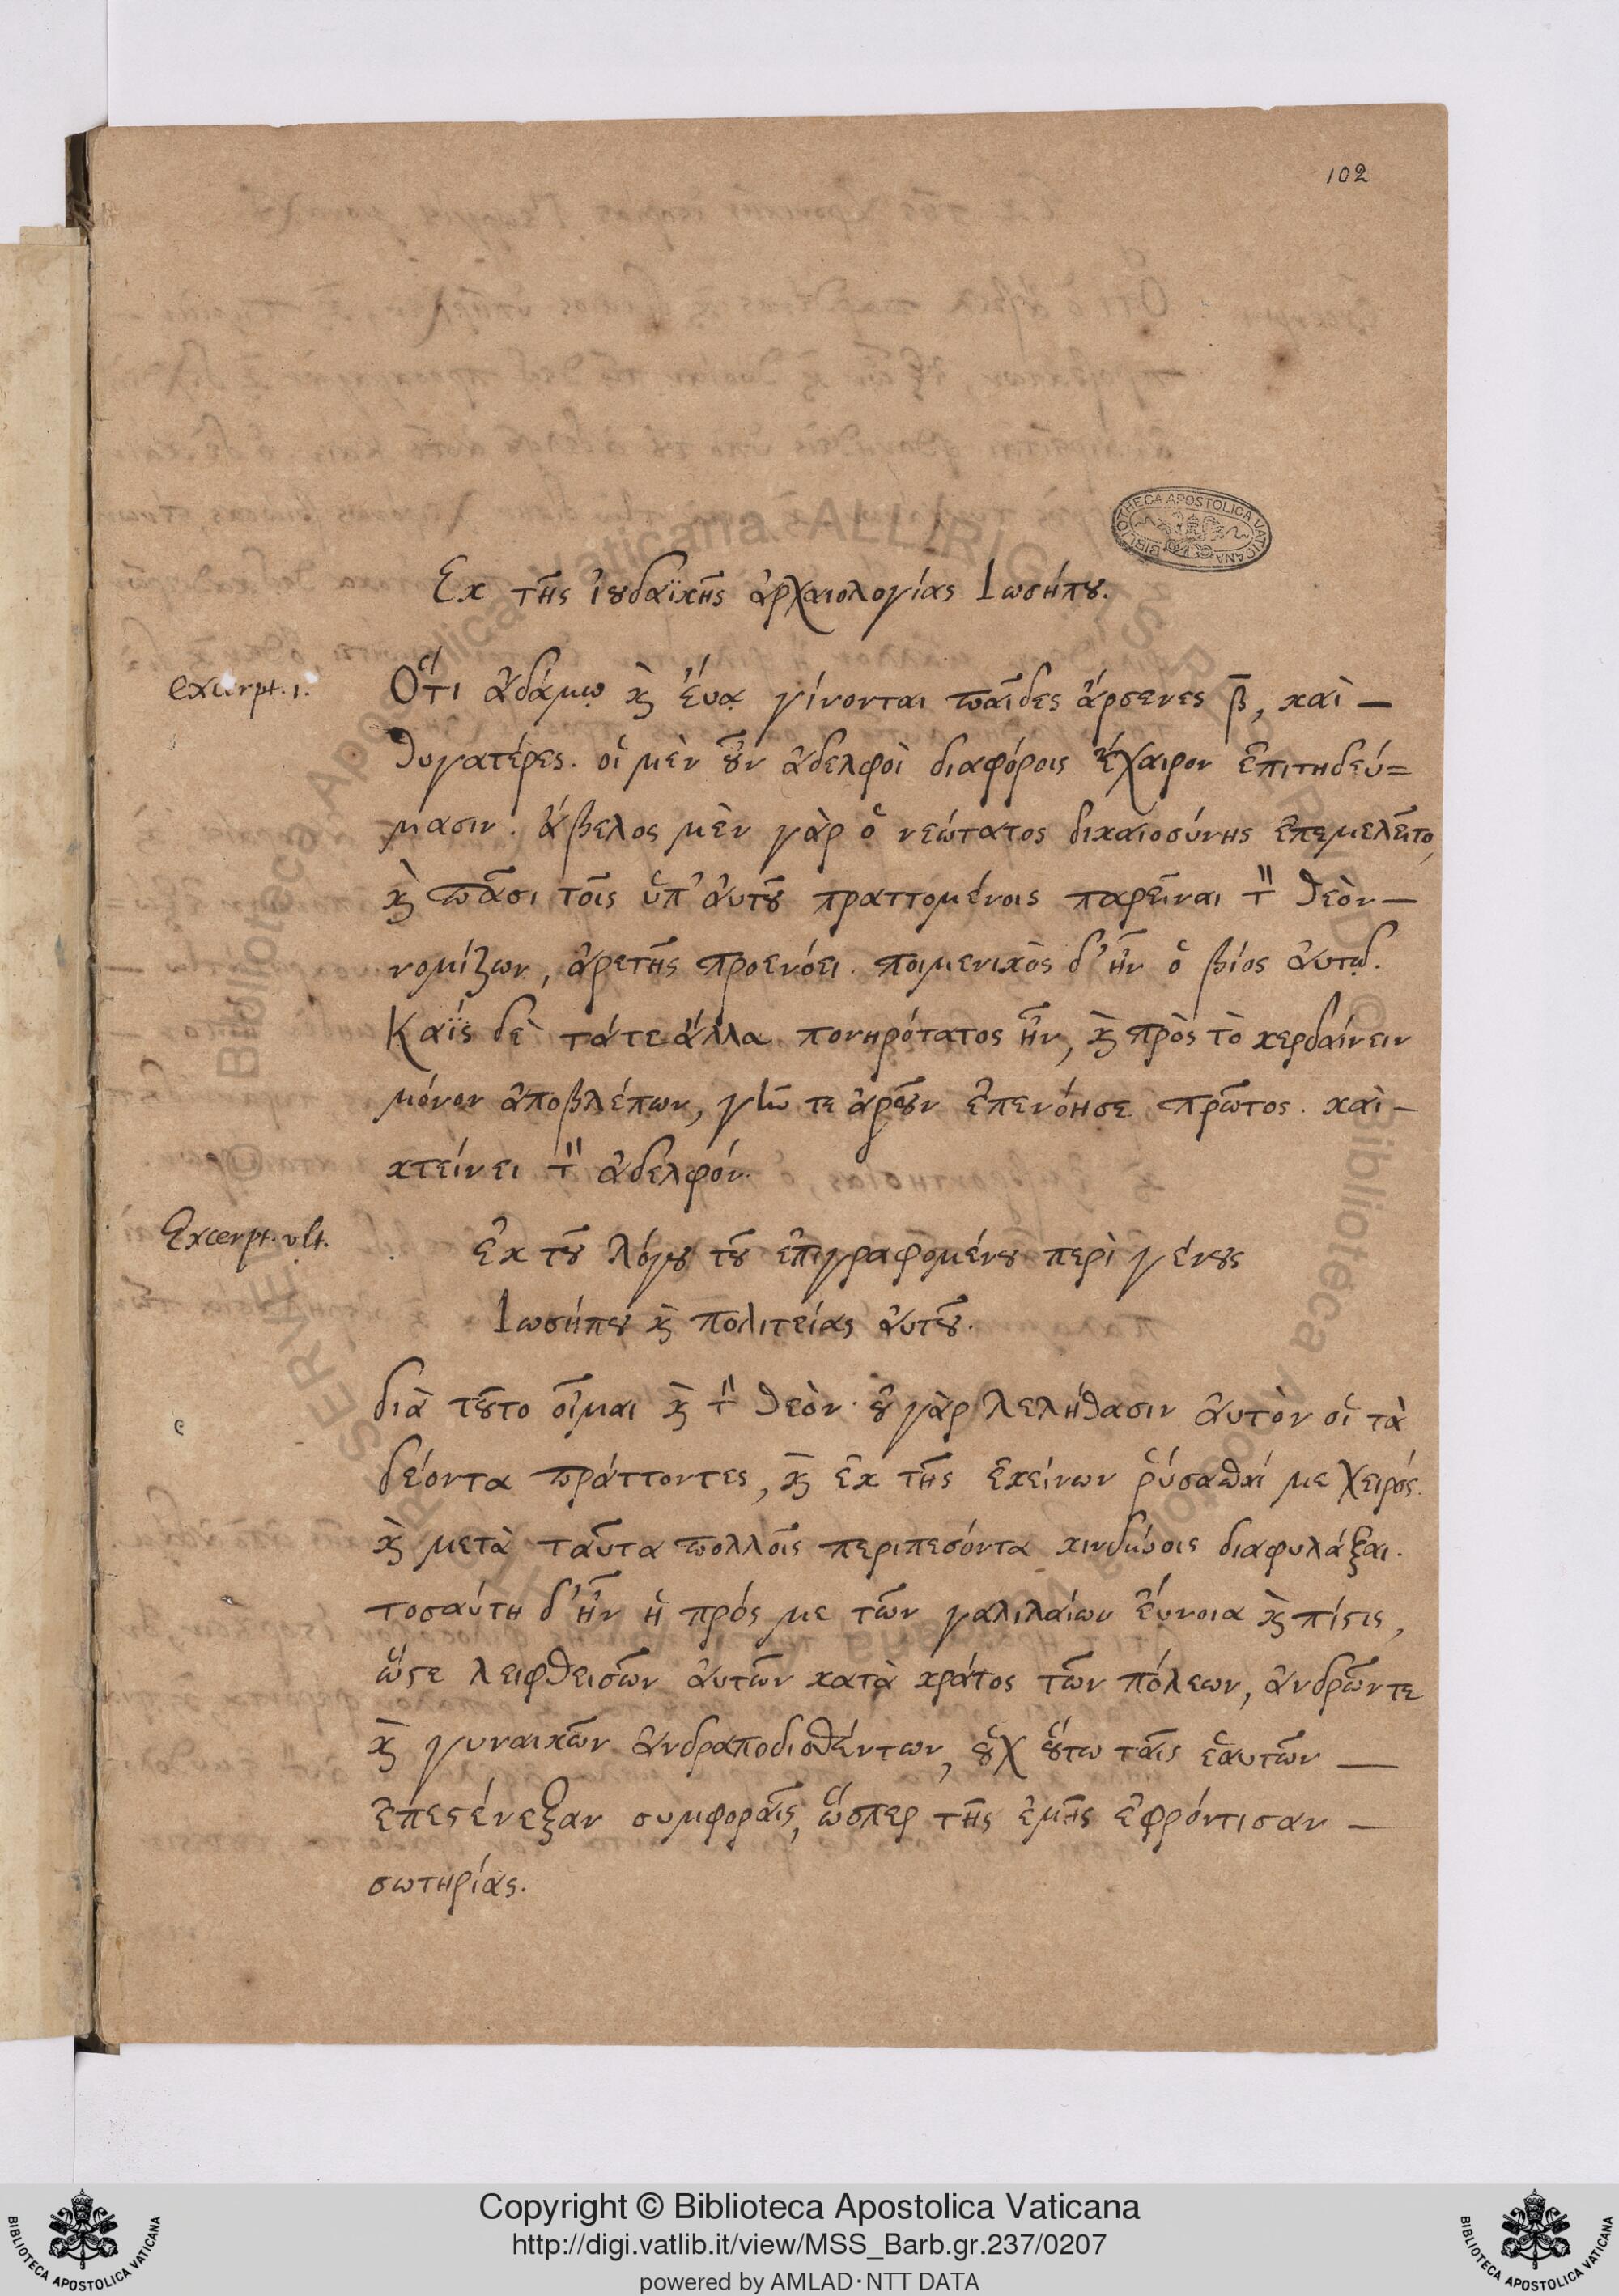 102
Εκ τῆς ἰουδαϊκῆς ἀρχαιολογίας Ιωσήπου.
excerpt. 1.
Ὅτι ἀδάμῳ καὶ ἔυᾳ γίνονται παῖδες ἄρσενες β̄, καὶ —
θυγατέρες. οἱ μὲν οὖν ἀδελφοὶ διαφόροις ἔχαιρον ἐπιτηδεύ=
μασιν. ἄβελος μὲν γὰρ ὁ νεώτατος δικαιοσύνης ἐπεμελεῖτο,
καὶ πᾶσι τοῖς ὑπ' ἀυτοῦ πραττομένοις παρεῖναι τὸν θεὸν —
νομίζων, ἀρετῆς προενόει. ποιμενικὸς δ' ἦν ὁ βίος ἀυτῷ.
Καϊς δὲ τάτε ἄλλα πονηρότατος ἦν, καὶ πρὸς τὸ κερδαίνειν
μόνον ἀποβλέπων, γῆν τε ἀροῦν ἐπενόησε πρῶτος. καὶ —
κτείνει τὸν ἀδελφόν.
Excerpt. ult.
ἐκ τοῦ λόγου τοῦ ἐπιγραφομένου περὶ γένους
Ιωσήπου καὶ πολιτείας ἀυτοῦ.
διὰ τοῦτο οἶμαι καὶ τὸν θεὸν. οὐ γὰρ λελήθασιν ἀυτὸν οἱ τὰ
δέοντα πράττοντες, καὶ ἐκ τῆς ἐκείνων ῥύσασθαί με χειρός.
καὶ μετὰ ταῦτα πολλοῖς περιπεσόντα κινδύνοις διαφυλάξαι.
τοσαύτη δ' ἦν ἡ πρός με τῶν γαλιλαίων ἔυνοια καὶ πίστις,
ὥστε λειφθεισῶν ἀυτῶν κατὰ κράτος τῶν πόλεων, ἀνδρῶν τε
καὶ γυναικῶν ἀνδραποδισθέντων, οὐχ οὕτω ταῖς ἑαυτῶν —
ἐπεστέναξαν συμφοραῖς, ὥσπερ τῆς ἐμῆς ἐφρόντισαν —
σωτηρίας.
BIBLIOTHECA APOSTOLICA VATICANA
Copyright © Biblioteca Apostolica Vaticana
http://digi.vatlib.it/view/MSS_Barb.gr.237/0207
powered by AMLAD·NTT DATA
BIBLIOTECA APOSTOLICA VATICANA
BIBLIOTECA APOSTOLICA VATICANA